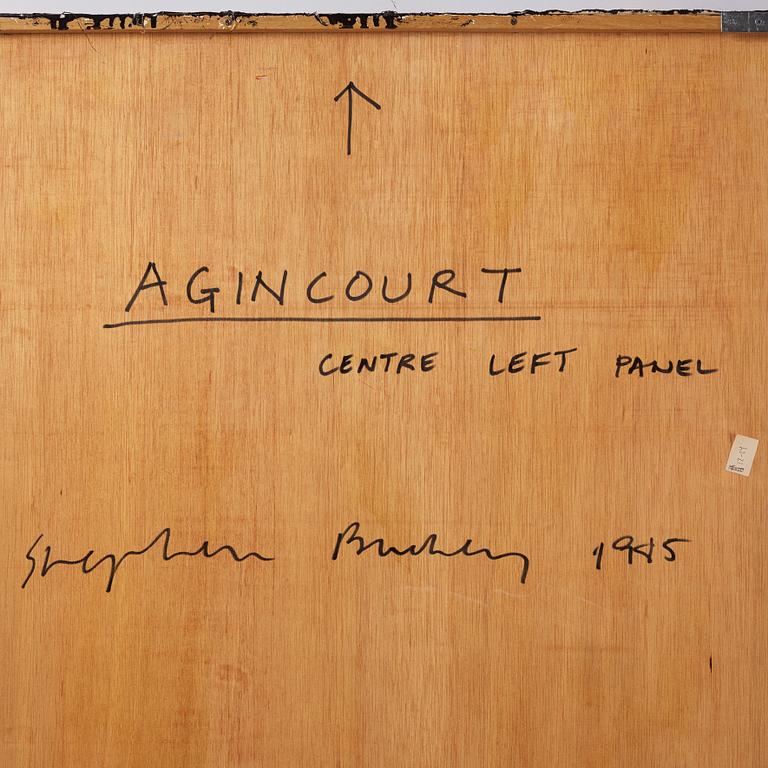 AGINCOURT
CENTRE LEFT PANEL
Stephen Buckley 1985